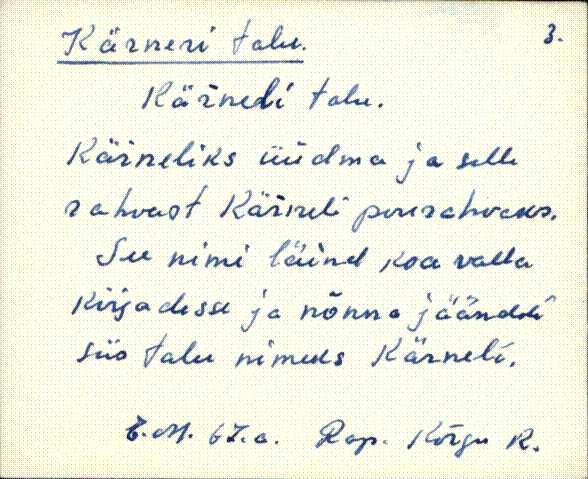 Kärneri talu. 3.
Kärnedi talu.
Kärneliks üüdma ja selle
rahvast Kärneli pererahvaks.
See nimi läind koa valla
kirjadesse ja nõnna jäänddi
siis talu nimeks Kärneli.
E.M. 67.a. Rap. Kõrgu R.